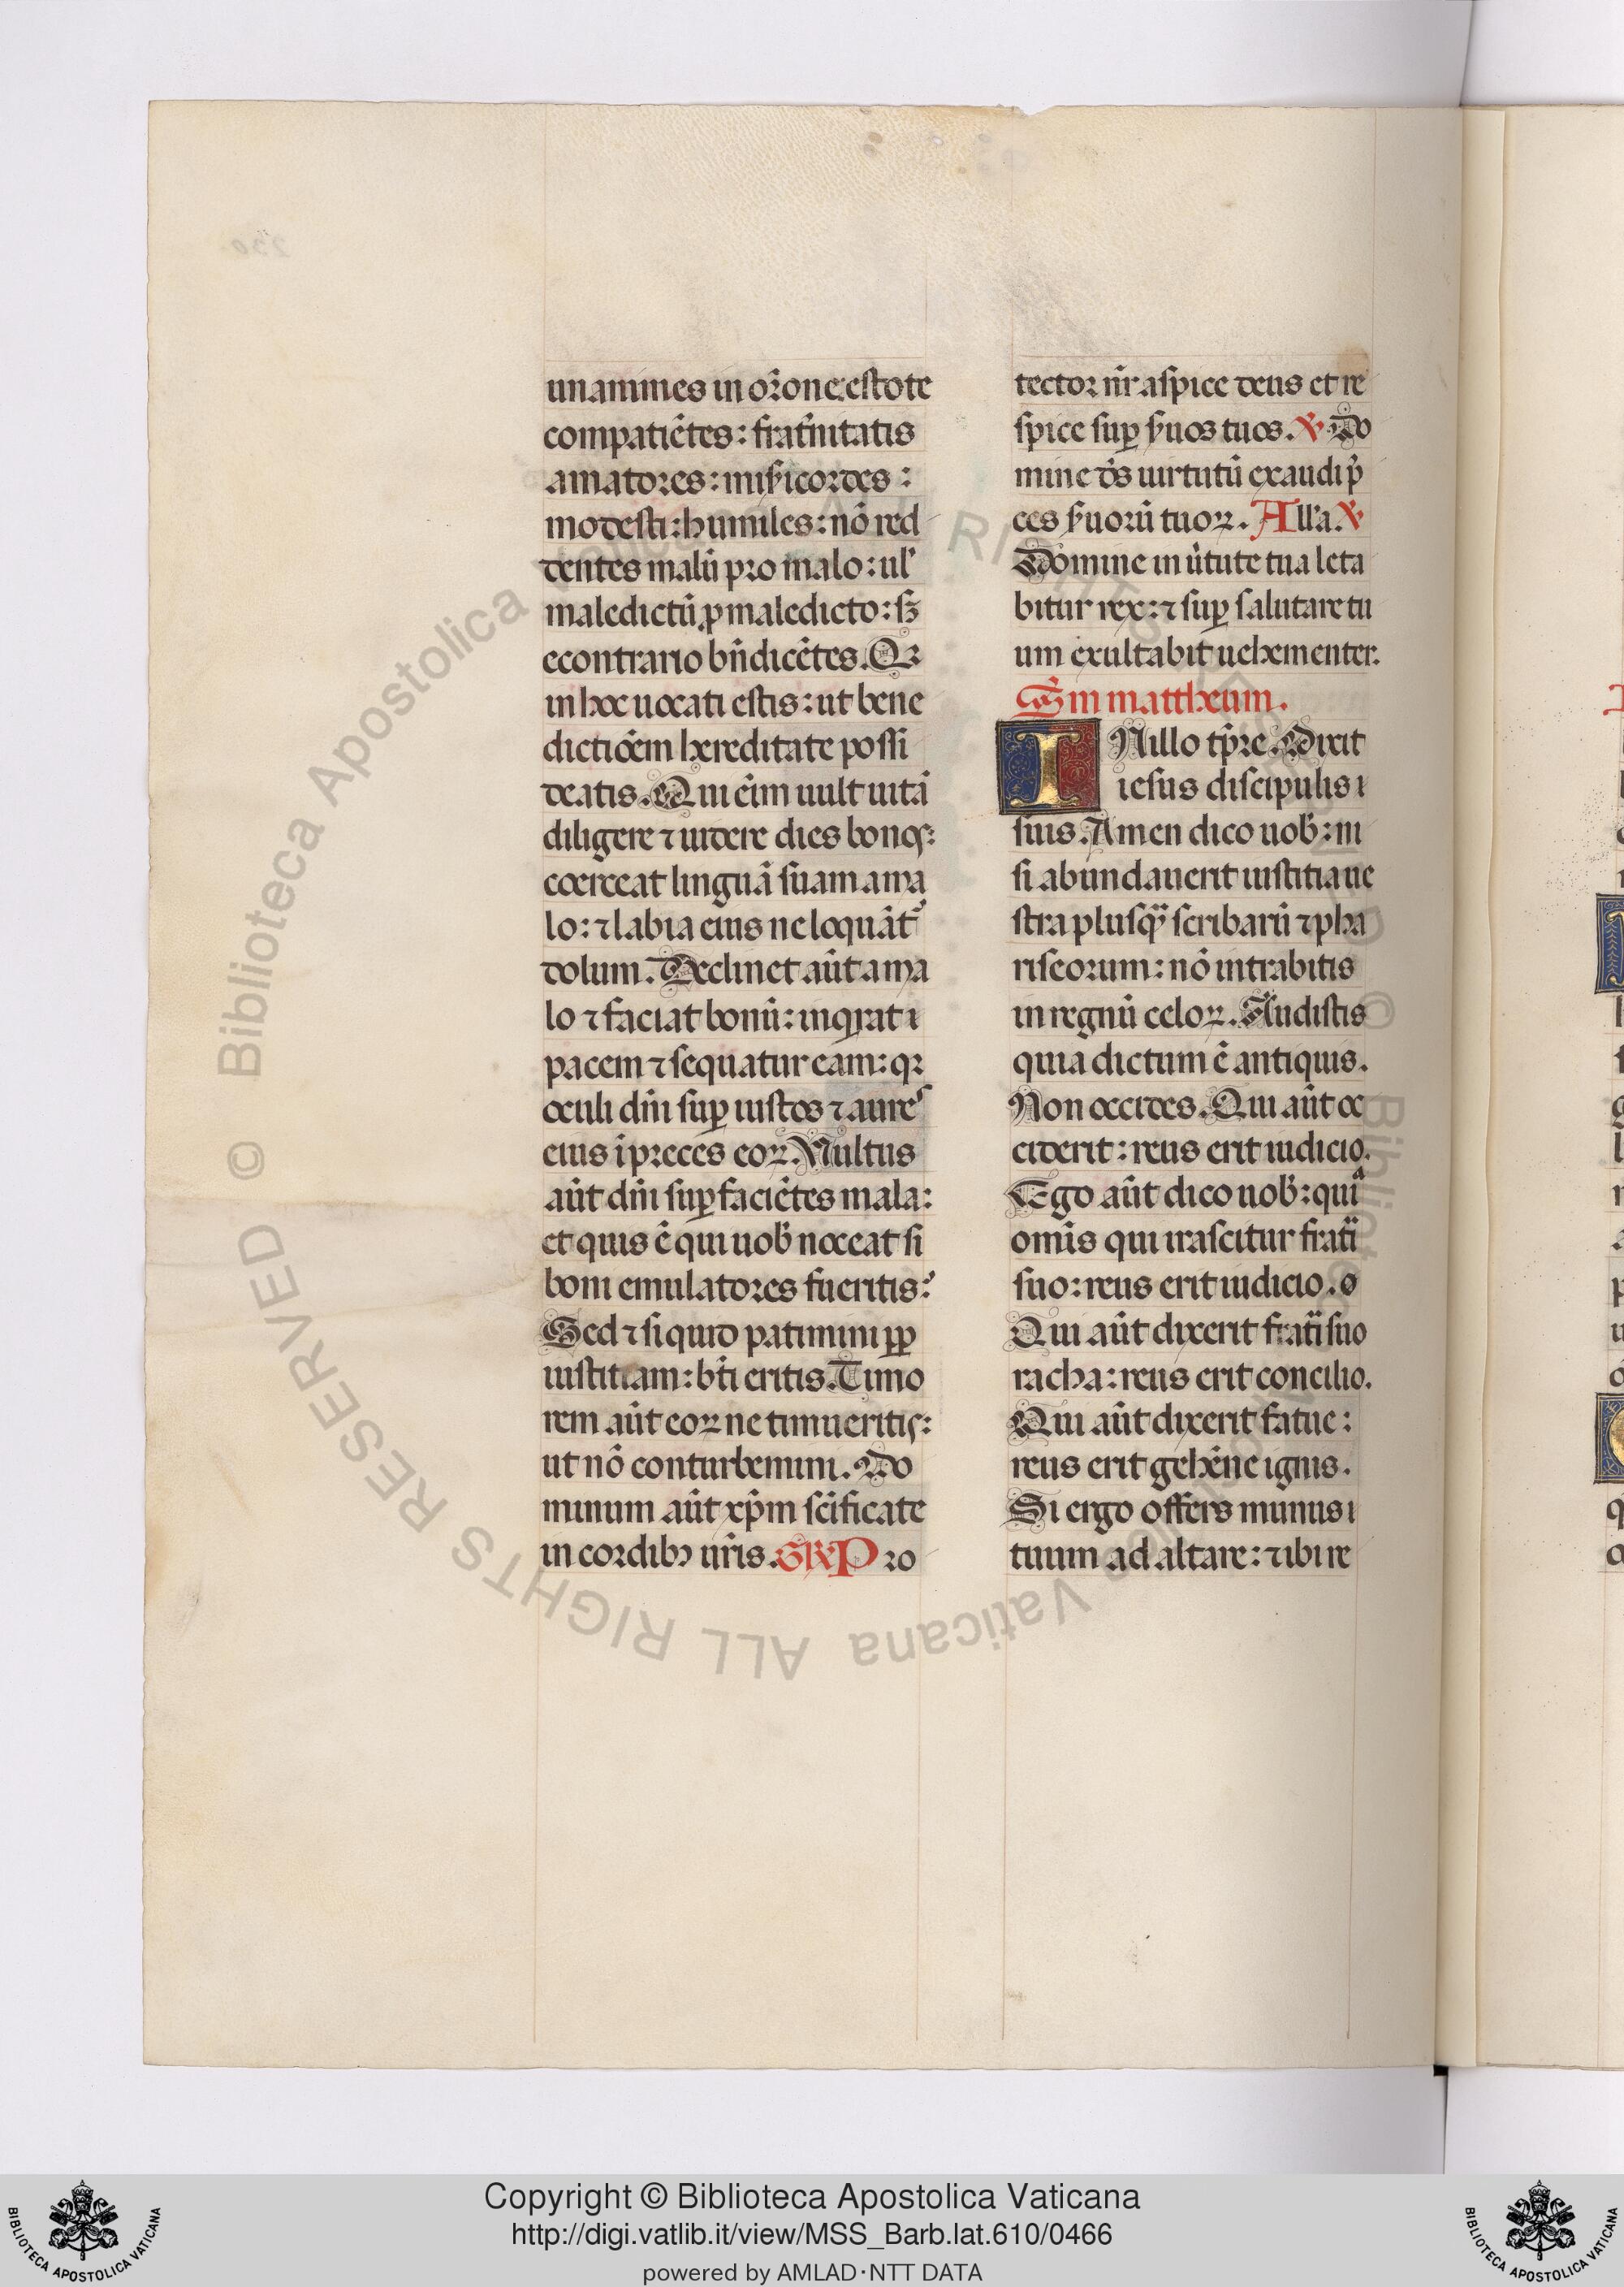 unanimes in or̃one estote
compatiẽtes: frat̃nitatis
amatores: mis̃icordes:
modesti: humiles: nõ red
dentes malũ pro malo: ul'
maledictũ ꝓ maledicto: sꝫ
econtrario bñdicẽtes. Qꝛ
in hoc uocati estis: ut bene
dictiõem hereditate possi
deatis. Qui eim̃ uult uitã
diligere ⁊ uidere dies bonos:
coerceat linguã suam a ma
lo: ⁊ labia eius ne loquãt᷑
dolum. Declinet aũt a ma
lo ⁊ faciat bonũ: inqͥrat
pacem ⁊ sequatur eam: qꝛ
oculi dñi suꝑ iustos ⁊ aures
eius ĩ preces eoꝝ. Vultus
aũt dñi suꝑ faciẽtes mala:
et quis ẽ qui uob̃ noceat si
boni emulatores fueritis:
Sed ⁊ si quid patimini ꝓp
iustitiam: bt̃i eritis. Timo
rem aũt eoꝝ ne timueritis:
ut nõ conturbemini. Do
minum aũt xp̃m sc̃ificate
in cordibꝰ ur̃is. GR̃ Pro
tector nr̃ aspice deus et re
spice suꝑ s̃uos tuos. ℣ Do
mine ds̃ uirtutũ exaudi p̃
ces s̃uorũ tuoꝝ. All'a. ℣
Domine in ũtute tua leta
bitur rex: ⁊ suꝑ salutare tu
um exultabit uehementer.
Sm mattheum.
IN illo tp̃re. Dixit
iesus discipulis
suis. Amen dico uob̃: ni
si abundauerit iustitia ue
stra plusqͣ̃ scribarũ ⁊ pha
riseorum: nõ intrabitis
in regnũ celoꝝ. Audistis
quia dictum ẽ antiquis.
Non occides. Qui aũt oc
ciderit: reus erit iudicio.
Ego aũt dico uob̃: quiᵃ
omis̃ qui irascitur frat̃i
suo: reus erit iudicio.
Qui aũt dixerit frat̃i suo
racha: reus erit concilio.
Qui aũt dixerit fatue:
reus erit gehẽne ignis.
Si ergo offers munus
tuum ad altare: ⁊ ibi re
© Biblioteca Apostolica Vaticana ALL RIGHTS RESERVED
Copyright © Biblioteca Apostolica Vaticana
http://digi.vatlib.it/view/MSS_Barb.lat.610/0466
powered by AMLAD·NTT DATA
BIBLIOTECA APOSTOLICA VATICANA
BIBLIOTECA APOSTOLICA VATICANA